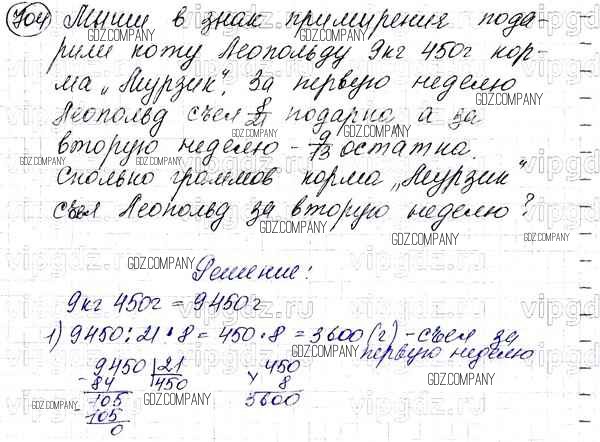 704 Мыши в знак примирения пода-
рили коту Леопольду 9кг 450г кор-
ма „Мурзик". За первую неделю
Леопольд съел 8/21 подарка, а за
вторую неделю - 9/13 остатка.
Сколько граммов корма „Мурзик"
съел Леопольд за вторую неделю?
Решение:
9кг 450г = 9450г
1) 9450 : 21 · 8 = 450 · 8 = 3600 (г) - съел за
первую неделю
9450 | 21
- 84 | 450
105
- 105
0
450
× 8
3600
GDZ.COMPANY
vipgdz.ru